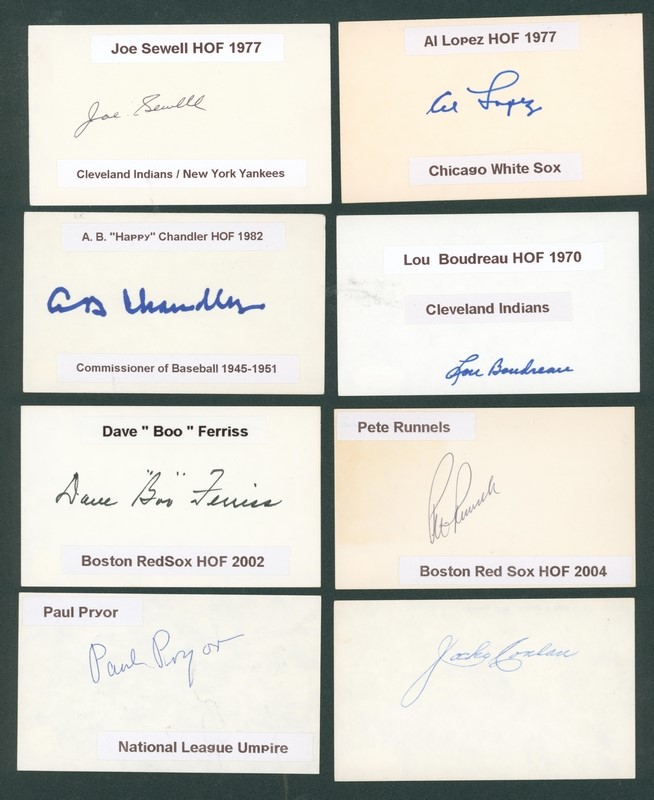 Joe Sewell HOF 1977
Joe Sewell
Cleveland Indians / New York Yankees
Al Lopez HOF 1977
Al Lopez
Chicago White Sox
A. B. "Happy" Chandler HOF 1982
A B Chandler
Commissioner of Baseball 1945-1951
Lou Boudreau HOF 1970
Cleveland Indians
Lou Boudreau
Dave " Boo " Ferriss
Dave "Boo" Ferriss
Boston RedSox HOF 2002
Pete Runnels
Pete Runnels
Boston Red Sox HOF 2004
Paul Pryor
Paul Pryor
National League Umpire
Jocko Conlan